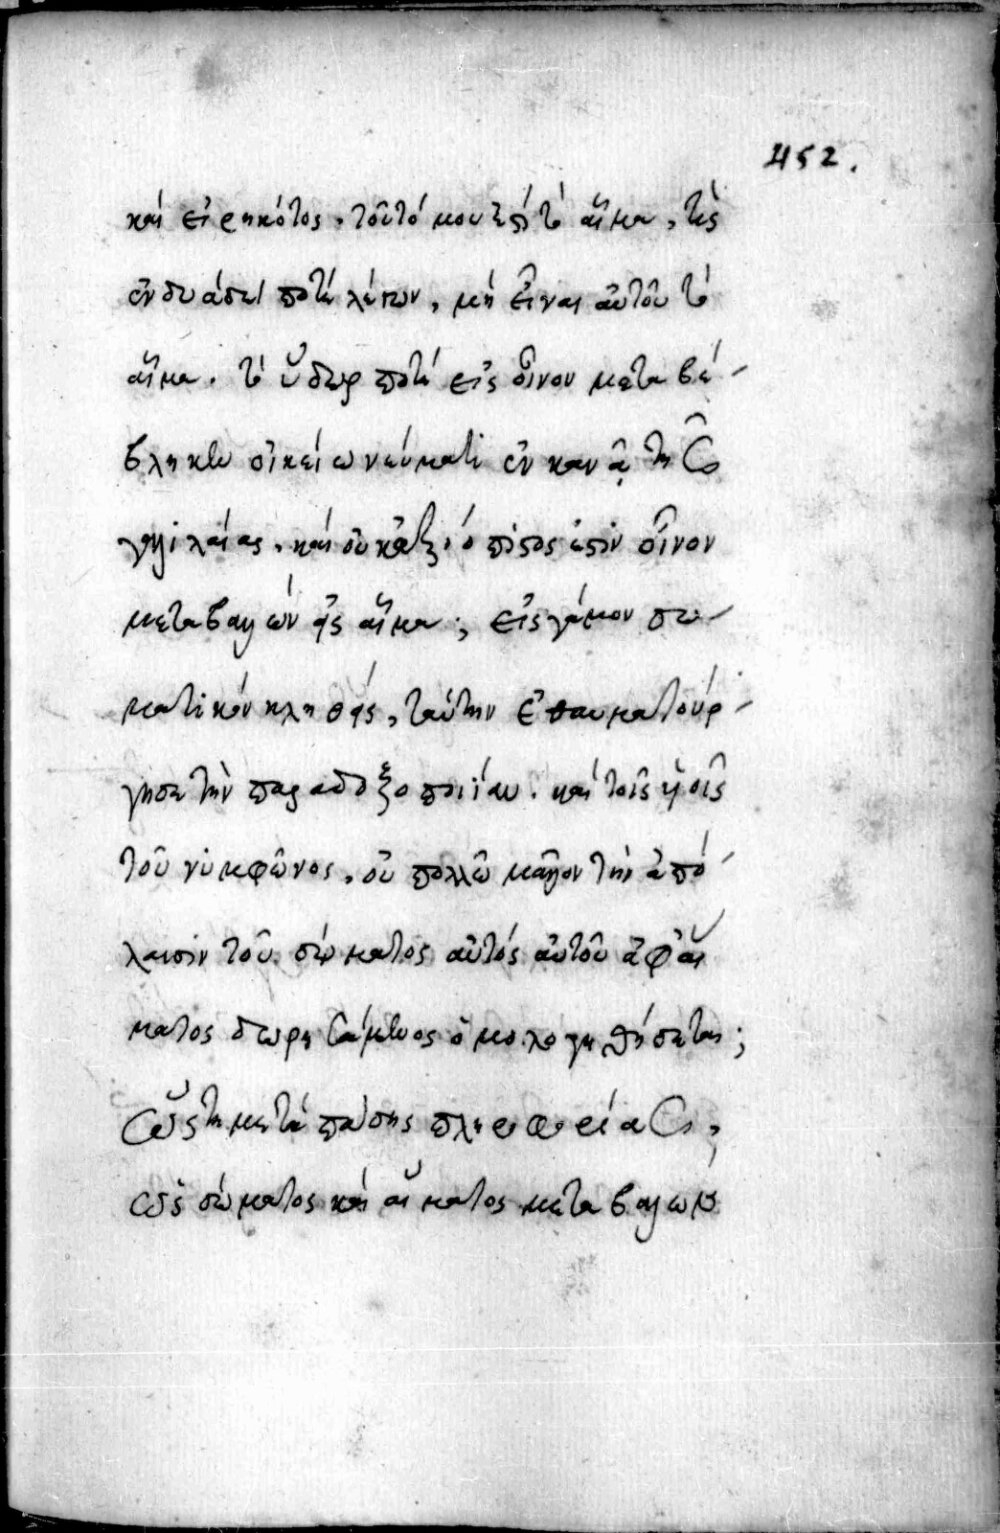 452.
καὶ εἰρηκότος, τοῦτό μου ἐστὶ τὸ αἷμα, τίς
ἐνδυάσει ποτὲ λέγων, μὴ εἶναι αὐτοῦ τὸ
αἷμα. τὸ ὕδωρ ποτὲ εἰς οἶνον μεταβέ-
βληκεν οἰκείω νεύματι ἐν κανᾷ τῆς
γαλιλαίας, καὶ οὐκ ἀξιόπιστός ἐστιν οἶνον
μεταβαλὼν εἰς αἷμα; εἰς γάμον σω-
ματικὸν κληθείς, ταύτην ἐθαυματούρ-
γησε τὴν παραδοξοποιίαν. καὶ τοῖς υἱοῖς
τοῦ νυμφῶνος, οὐ πολλῶ μᾶλλον τὴν ἀπό-
λαυσιν τοῦ σώματος αὐτὸς αὐτοῦ καὶ αἵ
ματος δωρησάμενος ὁμολογηθήσεται;
ὥστε μετὰ πάσης πληροφορίας,
ὡς σώματος καὶ αἵματος μεταλαμ